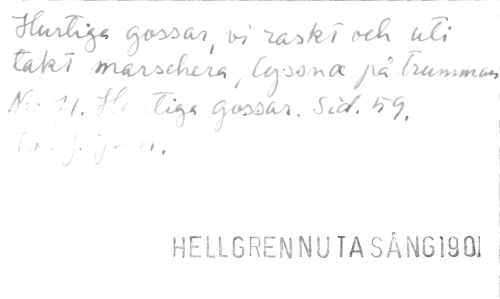 Hurtiga gossar, vi raskt och uti
takt marschera, lyssna på trumman
No. 71. Hurtiga gossar. Sid. 59.
HELLGREN NU TA SÅNG 1901